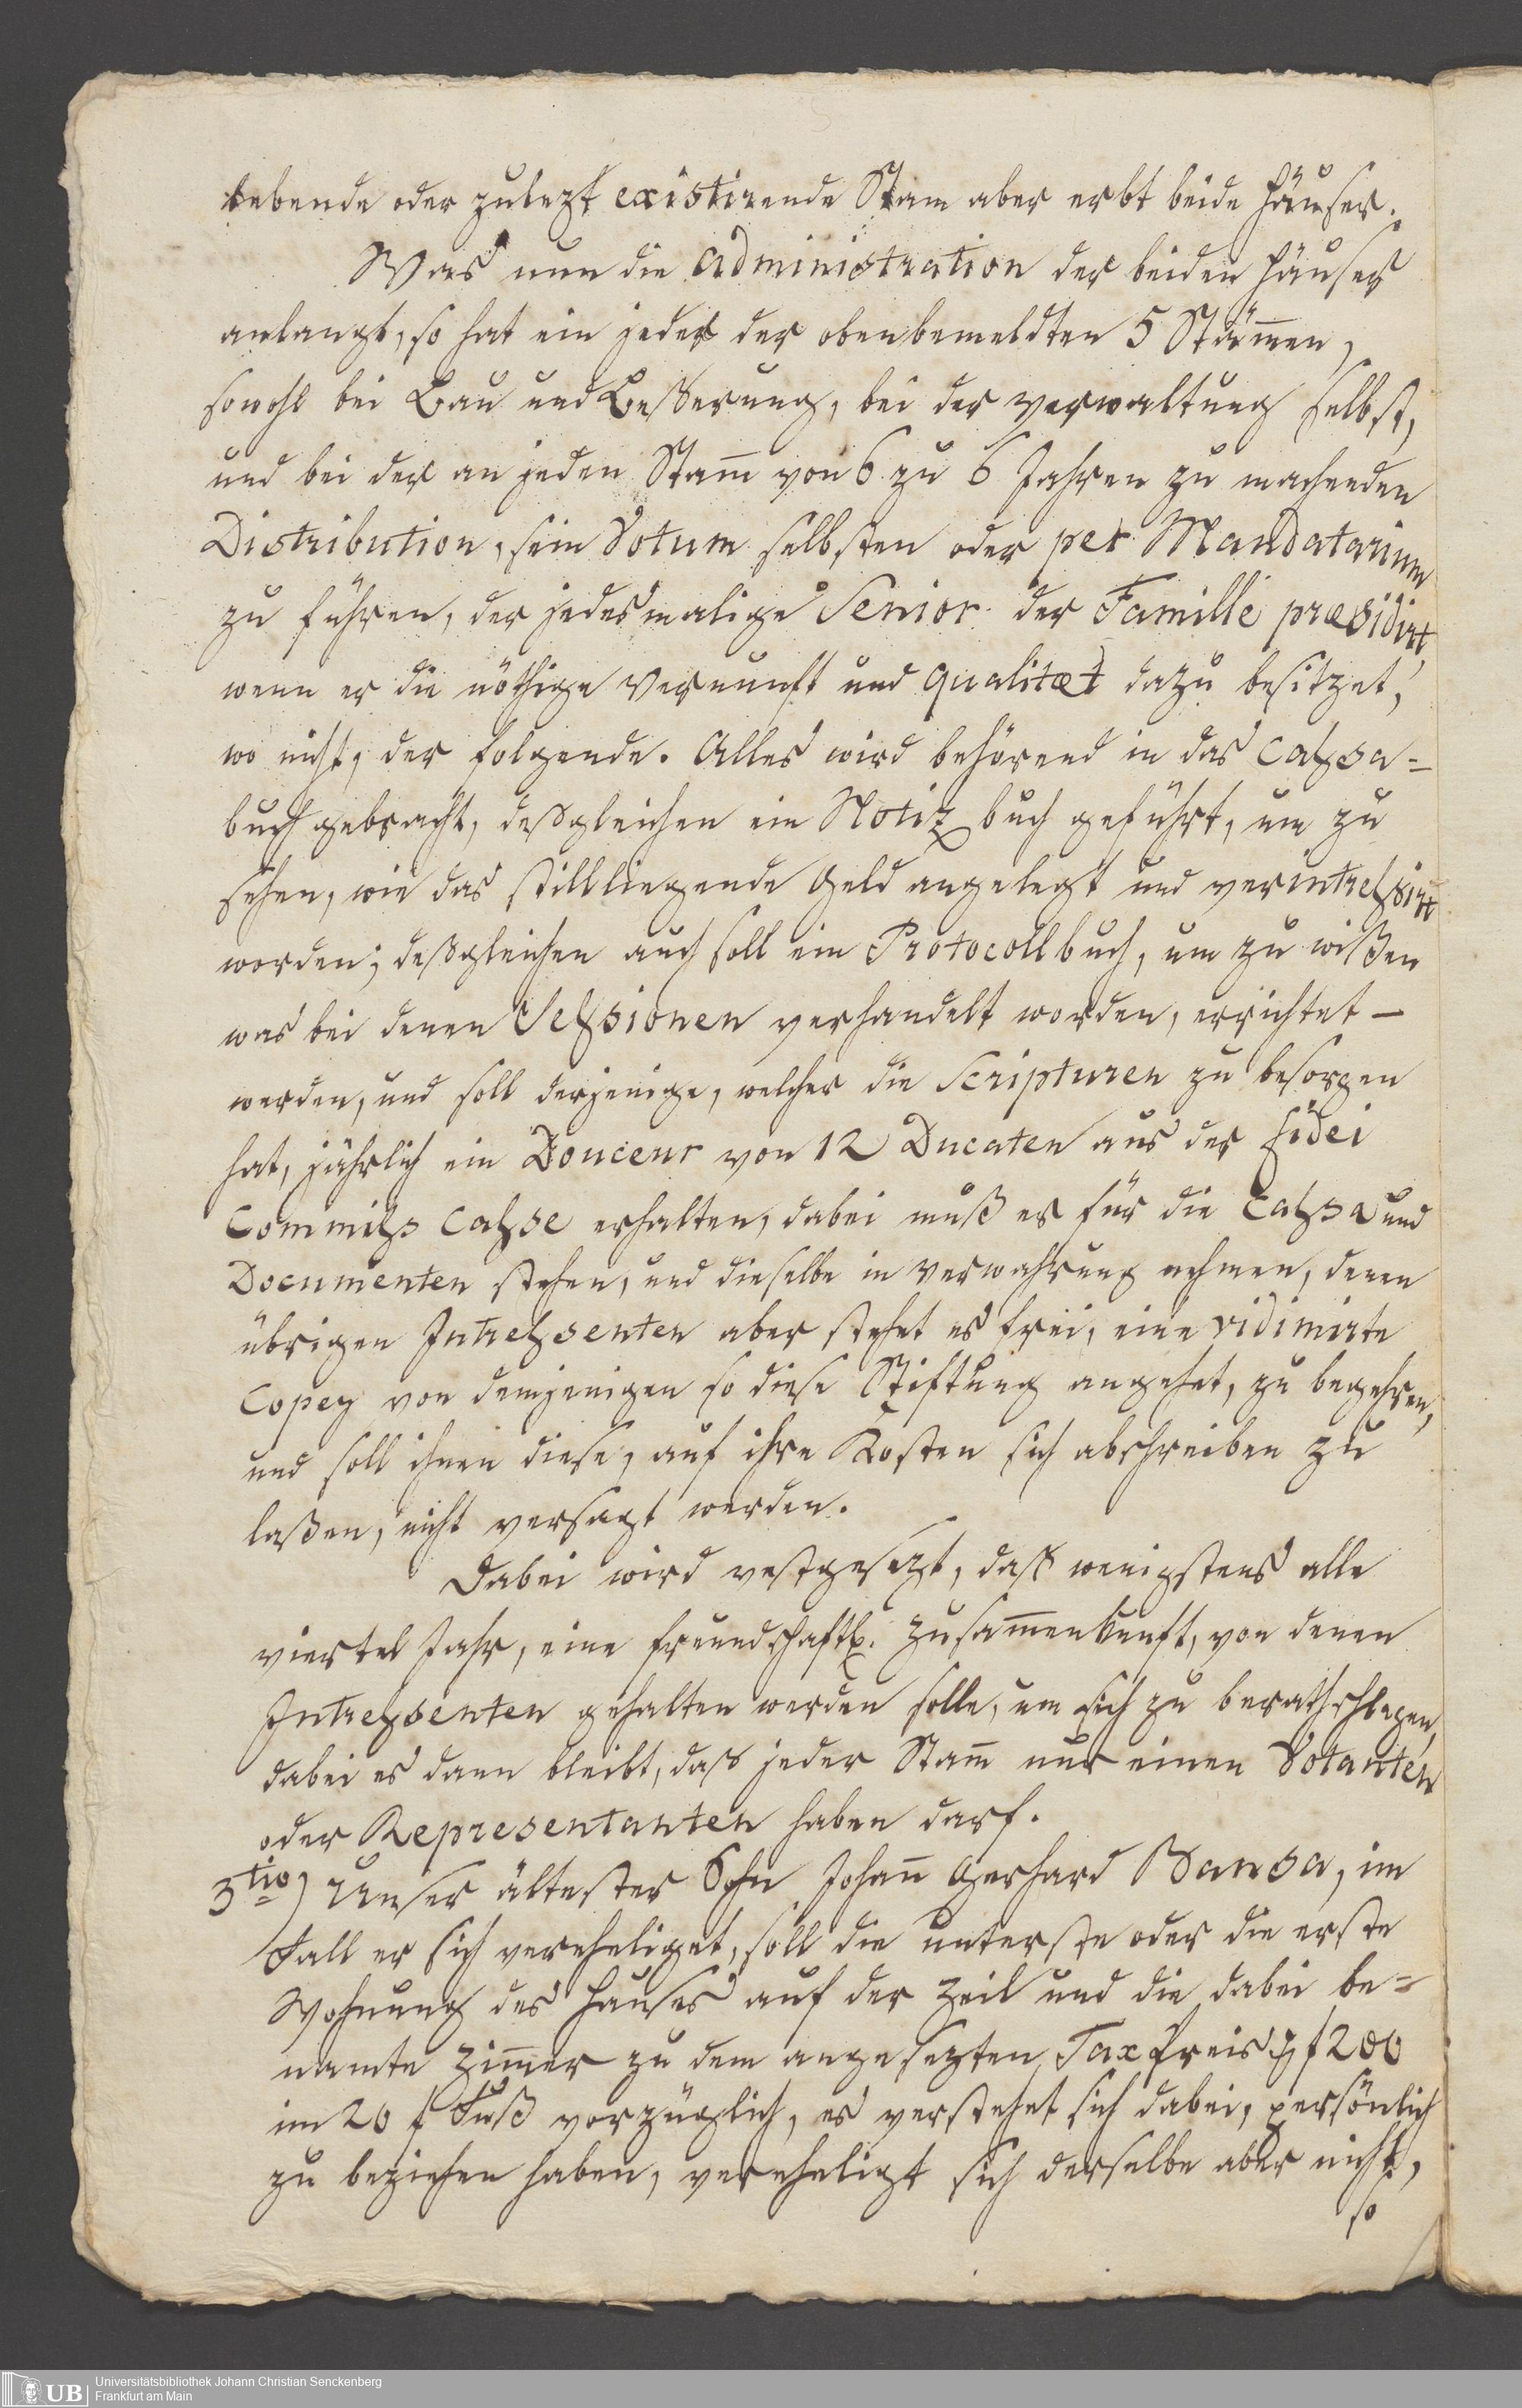 lebende oder zulezt existirende Stam aber erbt beide Häuser.
Was nun die administration der beiden Häuser
anlangt, so hat ein jeder der obenbemeldten 5 Stam̄en,
sowohl bei Bau und Beßerung, bei der Verwaltung selbst,
und bei der an jeden Stam̄ von 6 zu 6 Jahren zu machenden
Distribution, sein Votum selbsten oder per Mandatarium
zu führen, der jedesmalige Senior der Famille præsidirt,
wenn er die nöthige Vernunft und qualitæt dazu besitzet,
wo nicht, der folgende. Alles wird behörend in das Cassa-
buch gebracht, deßgleichen ein Notiz buch geführt, um zu
sehen, wie das stillliegende Geld angelegt und verintressirt
worden; deßgleichen auch soll ein Protocollbuch, um zu wißen
was bei denen Sessionen verhandelt worden, errichtet —
werden, und soll derjenige, welcher die Scripturen zu besorgen
hat, jährlich ein Douceur von 12 Ducaten aus der Fidei
Commiss Casse erhalten, dabei muß er für die Cassa und
Documenten stehen, und dieselbe in Verwahrung nehmen, denen
übrigen Intressenten aber stehet es frei, eine vidimirte
Copey von demjenigen so diese Stiftung angehet, zu begehren,
und soll ihnen diese, auf ihre Kosten sich abschreiben zu
laßen, nicht versagt werden.
Dabei wird vestgesezt, daß wenigstens alle
viertel Jahr, eine freundschaftl. Zusam̄enkunft, von denen
Intressenten gehalten werden solle, um sich zu berathschlagen,
dabei es dann bleibt, daß jeder Stam̄ nur einen Votanten
oder Representanten haben darf.
3tio) Unser ältester Sohn Johan̄ Gerhard Bansa, im
Fall er sich vereheliget, soll die unterste oder die erste
Wohnung des Hauses auf der Zeil und die dabei be-
namte Zim̄er zu dem angesezten Tax Preis f 200
im 20 f Fuß vorzüglich, es verstehet sich dabei, persönlich
zu beziehen haben, verehligt sich derselbe aber nicht,
so
Universitätsbibliothek Johann Christian Senckenberg
Frankfurt am Main
UB